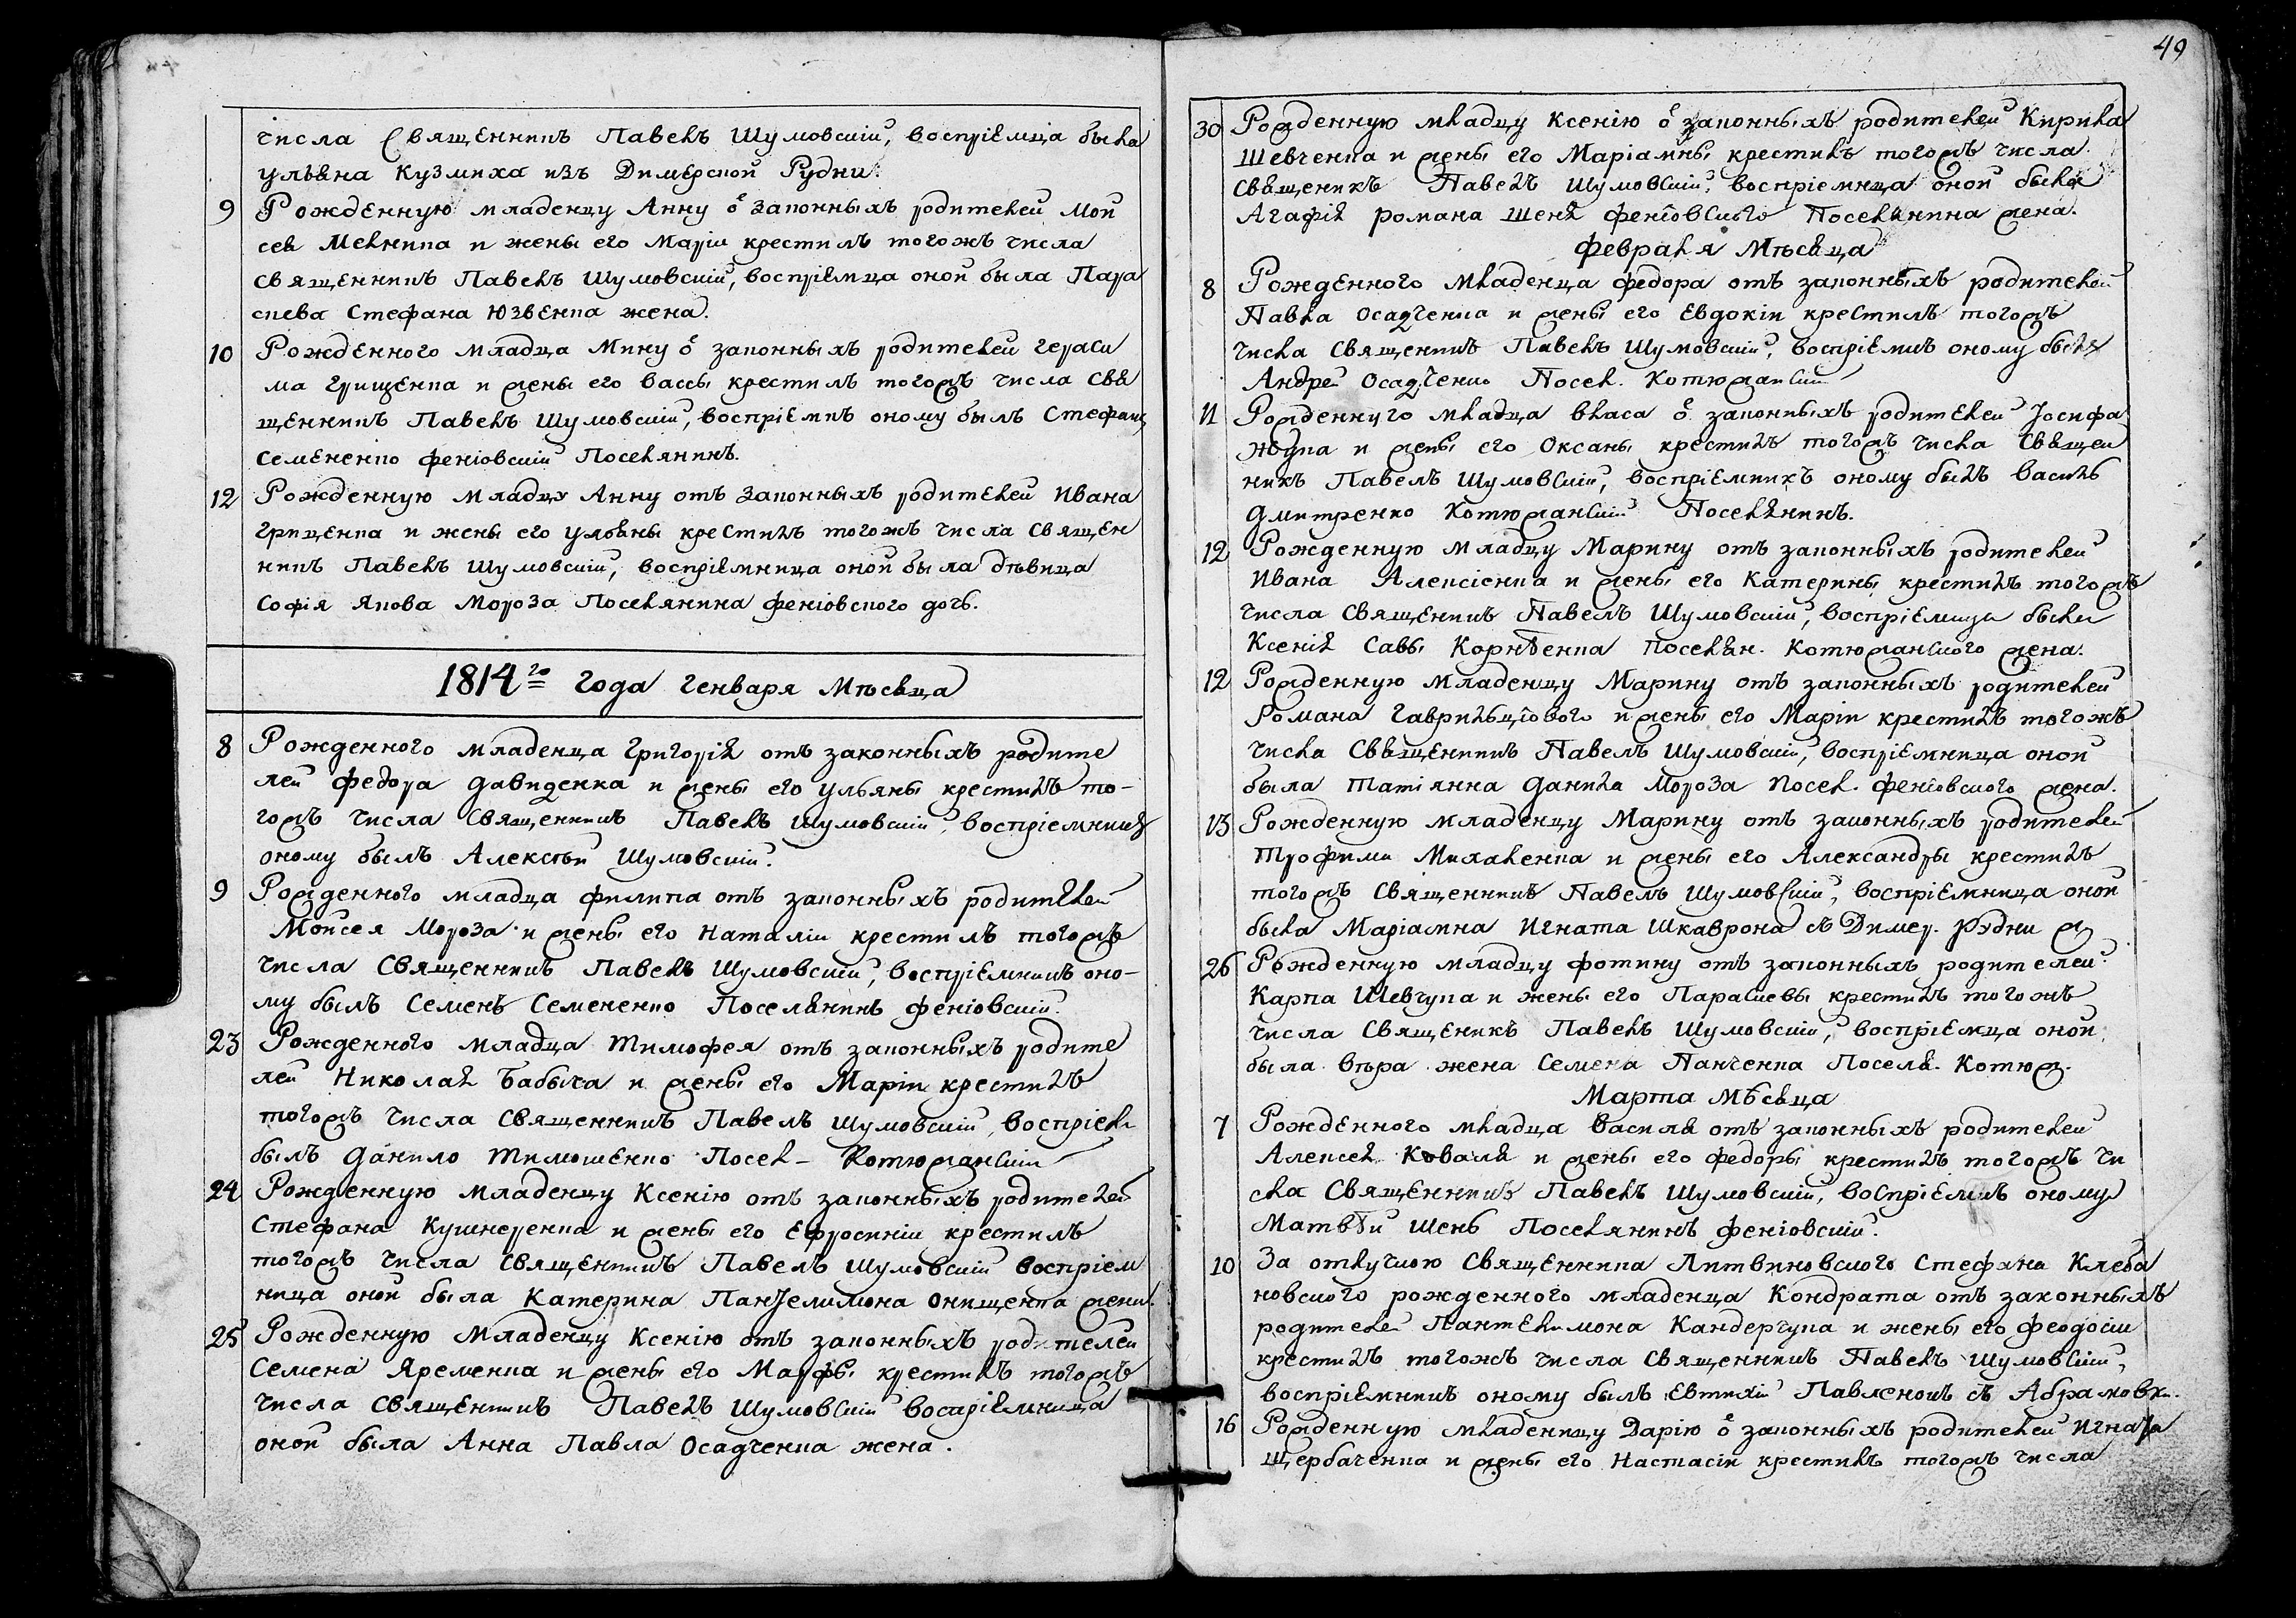 числа Священникъ Павелъ Шумовскій, воспріемца была
ульяна Кузмиха изъ Димерской Рудни.
9 Рожденную младенцу Анну ѿ законныхъ родителей Мои
сея Мелника и жены его Маріи крестилъ тогожъ числа
священникъ Павелъ Шумовскій, воспріемца оной была Пара
скева Стефана Юзвенка жена.
10 Рожденного младца Мину ѿ законныхъ родителей Гераси
ма Грищенка и жены его Вассы крестилъ тогожъ числа Свя
щенникъ Павелъ Шумовскій, воспріемникъ оному былъ Стефанъ
Семененко феніовскій Поселянинъ.
12 Рожденную младцу Анну отъ законныхъ родителей Ивана
Грищенка и жены его ульяны крестилъ тогожъ числа Священ
никъ Павелъ Шумовскій, воспріемница оной была дѣвица
Софія Якова Мороза Поселянина феніовского дочь.
1814го года Генваря Мѣсяца
8 Рожденного младенца Григорія отъ законныхъ родите
лей федора давиденка и жены его ульяны крестилъ то-
гожъ числа Священникъ Павелъ Шумовскій, воспріемникъ
оному былъ Алексѣй Шумовскій.
9 Рожденного младца филипа отъ законныхъ родителей
Моисея Мороза и жены его Наталіи крестилъ тогожъ
числа Священникъ Павелъ Шумовскій, воспріемникъ оно-
му былъ Семенъ Семененко Поселянинъ феніовскій.
23 Рожденного младца Тимофея отъ законныхъ родите
лей Николая Бабыча и жены его Маріи крестилъ
тогожъ числа Священникъ Павелъ Шумовскій, воспріем
былъ данило Тимошенко Посел- Котюжанскій
24 Рожденную младенцу Ксенію отъ законныхъ родителей
Стефана Кушнеренка и жены его Ефросиніи крестилъ
тогожъ числа Священникъ Павелъ Шумовскій воспріем
ница оной была Катерина Пантелимона Онищенка жена.
25 Рожденную младенцу Ксенію отъ законныхъ родителей
Семена Яременка и жены его Марфы крестилъ тогожъ
числа Священникъ Павелъ Шумовскій воспріемница
оной была Анна Павла Осадченка жена.
49
30 Рожденную младцу Ксенію ѿ законныхъ родителей Кирила
Шевченка и жены его Маріамны крестилъ тогожъ числа
Священикъ Павелъ Шумовскій, воспріемнца оной была
Агафія романа шеня феніовского Поселянина жена.
февраля Мѣсяца
8 Рожденного младенца федора отъ законныхъ родителей
Павла Осадченка и жены его Евдокіи крестилъ тогожъ
числа Священникъ Павелъ Шумовскій, воспріемнкъ оному былъ
Андрей Осадченко Посел. Котюжанскій
11 Рожденного младца Власа ѿ законныхъ родителей Іосифа
и жены его Оксаны крестилъ тогожъ числа Священ
никъ Павелъ Шумовскій, воспріемникъ оному былъ Василь
дмитренко Котюжанскій Поселянинъ.
12 Рожденную младцу Марину отъ законныхъ родителей
Ивана Алексіенка и жены его Катерины крестилъ тогожъ
числа Священникъ Павелъ Шумовскій, воспріемнца была
Ксенія Савы Корнѣенка Поселян. Котюжанского жена.
12 Рожденную младенцу Марину отъ законныхъ родителей
Романа Гаврильціового и жены его Маріи крестилъ тогожъ
числа Священникъ Павелъ Шумовскій, воспріемница оной
была татіянна данила Мороза Посел. феніовского жена.
13 Рожденную младенцу Марину отъ законныхъ родителей
Трофима Михаленка и жены его Александры крестилъ
тогожъ Священникъ Павелъ Шумовскій, воспріемница оной
была Маріамна Игната Шкаврона съ Димер. Рудни ж
26 Рожденную младцу фотину отъ законныхъ родителей
Карпа Шевчука и жены его Параскевы крестилъ тогожъ
числа Священикъ Павелъ Шумовскій, воспріемца оной
была Вѣра жена Семена Панченка Поселя. Котюж.
Марта Мѣсяца
7 Рожденного младца Василя отъ законныхъ родителей
Алексея Коваля и жены его федоры крестилъ тогожъ чи
сла Священникъ Павелъ Шумовскій, воспріемнкъ оному
Матвѣй Шень Поселянинъ феніовскій.
10 За отлучкою Священника Литвиновского Стефана Клеба
новского рожденного младенца Кондрата отъ законныхъ
родителей Пантелимона Кандерчука и жены его феодосіи
крестилъ тогожъ числа Священникъ Павелъ Шумовскій,
воспріемникъ оному былъ Евтихій Павленокъ съ Абрамовки.
16 Рожденную младеницу Дарію ѿ законныхъ родителей Игната
Щербаченка и жены его Настасіи крестилъ тогожъ числа